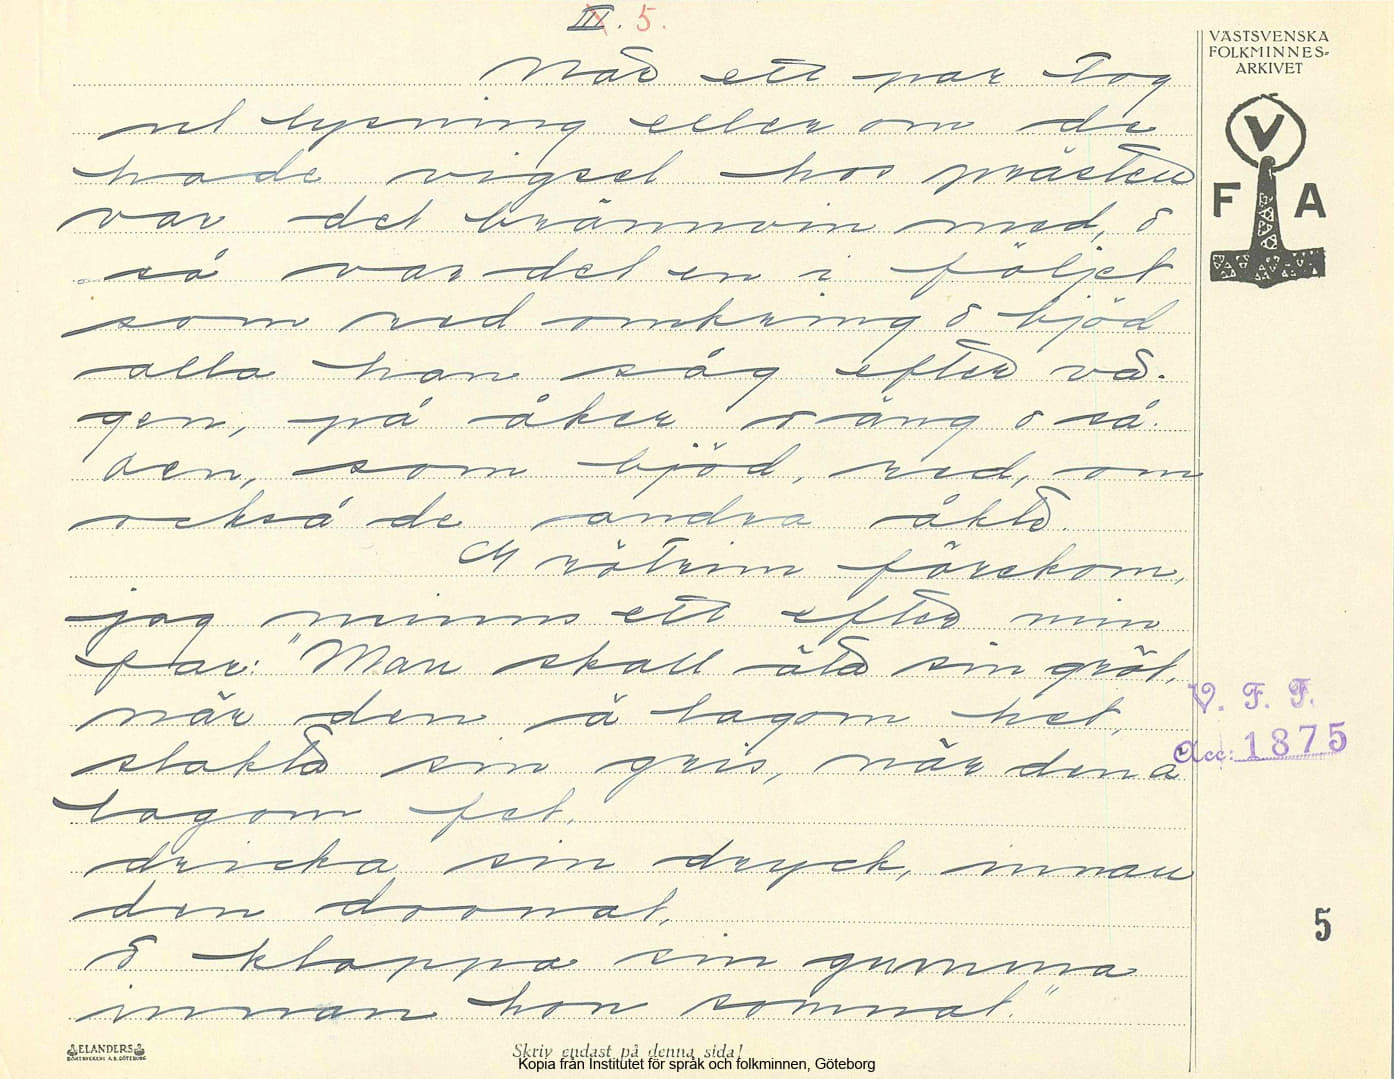 III. 5.
VÄSTSVENSKA
FOLKMINNES-
ARKIVET
V
F A
När ett par tog
ut lysning eller om de
hade vigsel hos prästen
var det brännvin med, o
så var det en i följet
som red omkring o bjöd
alla han såg efter vä-
gen, på åker o äng o så
den, som bjöd, red, om
också de andra åkte.
rötrim förekom,
jag minns ett efter min
far: "Man skall äta sin gröt,
när den ä lagom het,
slakta sin gris, när den ä
lagom fet,
dricka sin dryck, innan
den doonat,
o klappa sin gumma
innan hon somnat."
V. F. F.
Acc: 1875
5
ELANDERS
BOKTRYCKERI A.B. GÖTEBORG
Skriv endast på denna sida!
Kopia från Institutet för språk och folkminnen, Göteborg